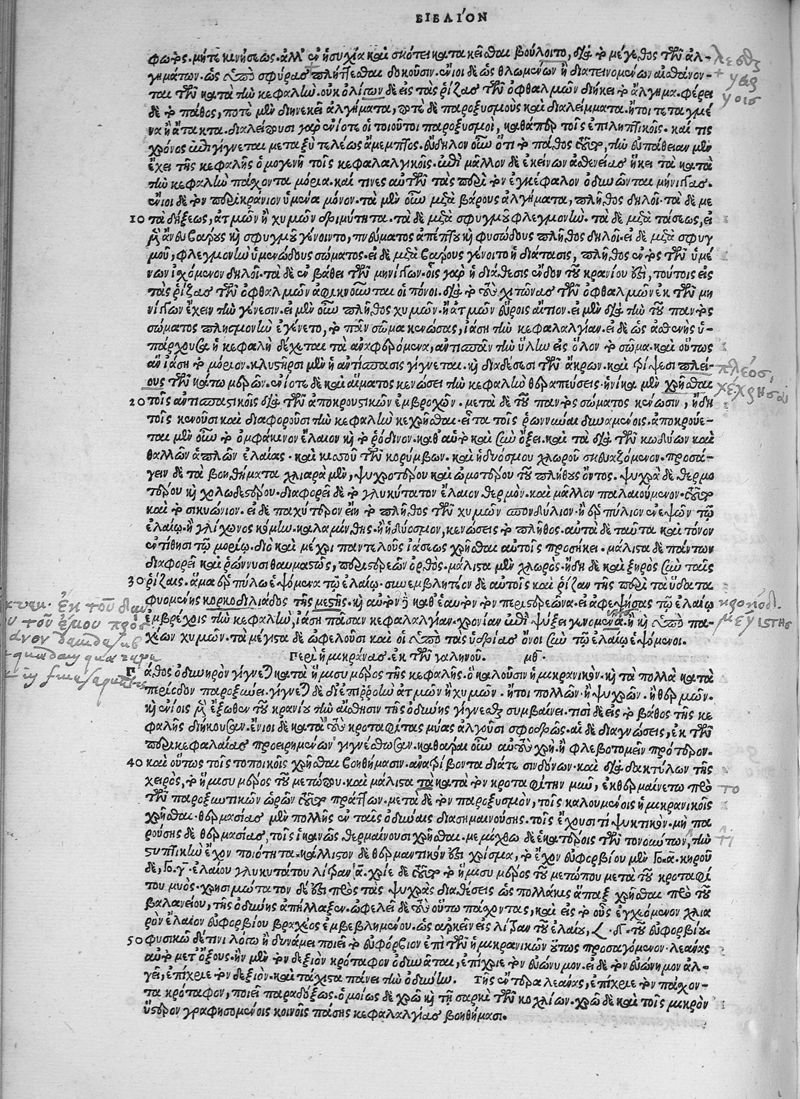 ΒΙΒΛΙΟΝ
φωτὸς. μήτε κινήσεως. ἀλλ' ἐν ἡσυχία καὶ σκότει κατακεῖσθαι βούλοιτο, διὰ τὸ μέγεθος τῶν ἀλ-
γημάτων. ὡς ὑπὸ σφύρας πλήττεσθαι δοκοῦσιν. ἔνιοι δὲ ὡς θλωμένων ἢ διατεινομένων αἰσθάνον-
ται τῶν κατὰ τὴν κεφαλὴν. οὐκ ὀλίγοις δὲ εἰς τὰς ῥίζας τῶν ὀφθαλμῶν διήκει τὸ ἄλγημα. φέρει
δὲ τὸ πάθος, ποτὲ μὲν διηνεκῆ ἀλγήματα, ποτὲ δὲ παροξυσμοὺς καὶ διαλείμματα. ἤτοι τεταγμέ
να ἢ ἄτακτα. διαλείπουσι γὰρ ἐνίοτε οἱ τοιοῦτοι παροξυσμοὶ, καθάπερ τοῖς ἐπιληπτικοῖς. καί τις
χρόνος γίγνεται μεταξὺ τελέως ἄμεμπτος. εὔδηλον οὖν ὅτι τὸ πάθος τοῦτο, τὴν εὐπάθειαν μὲν
ἔχει τῆς κεφαλῆς ὁμογενῆ τοῖς κεφαλαλγικοῖς. ἐπὶ μᾶλλον δὲ ἐκείνων ἀσθενείας ἥκει τὰ κατὰ
τὴν κεφαλὴν πάσχοντα μόρια. καί τινες αὐτῶν τὰς περὶ τὸν ἐγκέφαλον ὀδυνῶνται μήνιγγας.
ἔνιοι δὲ τὸν περικράνιον ὑμένα μόνον. τὰ μὲν οὖν μετὰ βάρους ἀλγήματα, πλῆθος δηλοῖ. τὰ δὲ με
10 τὰ δήξεως, ἀτμῶν ἢ χυμῶν δριμύτητα. τὰ δὲ μετὰ σφυγμοῦ φλεγμονὴν. τὰ δὲ μετὰ τάσεως, εἰ
μὲν ἄνευ βάρους καὶ σφυγμοῦ γένοιντο, πνεύματος ἀπέπτου καὶ φυσώδους πλῆθος δηλοῖ. εἰ δὲ μετὰ σφυγ
μοῦ, φλεγμονὴν ὑμενώδους σώματος. εἰ δὲ μετὰ βάρους γένοιτο ἡ διάτασις, πλῆθος ἐντὸς τῶν ὑμέ
νων ἰσχόμενον δηλοῖ. τὰ δὲ ἐν βάθει τῶν μηνίγγων. οἷς γὰρ ἡ διάθεσις ἔνδον τοῦ κρανίου ἐστὶ, τούτοις εἰς
τὰς ῥίζας τῶν ὀφθαλμῶν ἀφικνοῦνται οἱ πόνοι. διὰ τὸ τοὺς χιτῶνας τῶν ὀφθαλμῶν ἐκ τῶν μη
νίγγων ἔχειν τὴν γένεσιν. εἰ μὲν οὖν πλῆθος χυμῶν ἢ ἀτμῶν εὕροις αἴτιον. εἰ μὲν διὰ τὴν τοῦ παντὸς
σώματος πλησμονὴν ἐγένετο, τὸ πᾶν σῶμα κενώσας, ἰάσῃ τὴν κεφαλαλγίαν. εἰ δὲ ὡς ἀσθενὴς ὑ-
πάρχουσα ἡ κεφαλὴ δέχεται τὰ ἀναφερόμενα, ἀντισπᾶν τὴν ὕλην εἰς ὅλον τὸ σῶμα. καὶ οὕτως
ἂν ἰάσῃ τὸ μόριον. κλυστῆρσι μὲν ἡ ἀντίσπασις γίγνεται. καὶ διαδέσεσι τῶν ἄκρων. καὶ τρίψεσι πλεί-
ους τῶν κάτω μερῶν. ἐνίοτε δὲ καὶ αἵματος κενώσει τὴν κεφαλὴν θεραπεύσεις. ἡνίκα μὲν χρῆσθαι
20 τοῖς ἀντισπαστικοῖς διὰ τῶν ἀποκρουστικῶν ἐμβροχῶν. μετὰ δὲ τοῦ παντὸς σώματος κένωσιν, ἤδη
τοῖς κενοῦσι καὶ διαφοροῦσι τὴν κεφαλὴν κεχρῆσθαι. εἶτα τοῖς ῥωννύναι δυναμένοις. ἀποκρούε-
ται μὲν οὖν τὸ ὀμφάκινον ἔλαιον καὶ τὸ ῥόδινον. καθ' αὑτὸ καὶ σὺν ὄξει. καὶ τὰ διὰ τῶν κωδυῶν καὶ
θαλλῶν ἁπλῶν ἐλαίας. καὶ κισσοῦ τῶν κορύμβων. καὶ ἡδυόσμου χλωροῦ σκευαζόμενον. προσά-
γειν δὲ τὰ βοηθήματα χλιαρὰ μὲν, ψυχροτέρου καὶ ὠμοτέρου τοῦ πλήθους ὄντος. ψυχρὰ δὲ θερμο
τέρου καὶ χολωδεστέρου. διαφορεῖ δὲ τὸ γλυκύτατον ἔλαιον θερμὸν. καὶ μᾶλλον παλαιούμενον. τοῦτο
καὶ τὸ σικυώνιον. εἰ δὲ παχύτερον εἴη τὸ πλῆθος τῶν χυμῶν σπονδύλιον. ἢ ἑρπύλιον ἐνεψῶν τῷ
ἐλαίῳ. ἢ γλίχωνος κόμην. καλαμίνθης. ἢ ἡδύοσμον, κενώσεις τὸ πλῆθος. αὐτὰ δὲ ταῦτα καὶ τόνον
ἐντίθησι τῷ μορίῳ. διὸ καὶ μέχρι παντελοῦς ἰάσεως χρῆσθαι αὐτοῖς προσήκει. μάλιστα δὲ πάντων
διαφορεῖ καὶ ῥώννυσι θαυμαστῶς, περιστερεὼν ὀρθὸς. μάλιστα μὲν χλωρὸς. ἤδη δὲ καὶ ξηρὸς σὺν ταῖς
30 ῥίζαις. ἅμα ἑρπύλῳ ἑψόμενα τῷ ἐλαίῳ. συνεμβλητέον δὲ αὐτοῖς καὶ ῥίζαν τῆς περὶ τὰ ὕδατα
φυομένης κορκοδιλιάδος τῆς μεστῆς. καὶ αὐτὸν καθ' ἑαυτὸν τὸν περιστερεῶνα. εἰ ἀφεψήσας τῷ ἐλαίῳ
ἐμβρέχοις τὴν κεφαλὴν, ἰάσῃ πᾶσαν κεφαλαλγίαν. χρονίαν ἐπὶ ψύξει γενομένην. ἢ καὶ ὑπὸ πα-
χέων χυμῶν. τὰ μέγιστα δὲ ὠφελοῦσι καὶ οἱ ὑπὸ τὰς ὑδρίας ὄνοι σὺν τῷ ἐλαίῳ ἑψόμενοι.
Περὶ ἡμικρανίας. ἐκ τῶν γαληνοῦ. μθ'.
Πάθος ὀδυνηρὸν γίγνεται κατὰ ἥμισυ μέρος τῆς κεφαλῆς. ὃ καλοῦσιν ἡμικρανικὸν. καὶ τὰ πολλὰ κατὰ
περίοδον παροξύνει. γίγνεται δὲ δι' ἐπίρροιαν ἀτμῶν ἢ χυμῶν. ἤτοι πολλῶν. ἢ ψυχρῶν. ἢ θερμῶν.
καὶ ἐνίοις μὲν ἔξωθεν τοῦ κρανίου τὴν αἴσθησιν τῆς ὀδύνης γίγνεσθαι συμβαίνει. τισὶ δὲ εἰς τὸ βάθος τῆς κε
φαλῆς διήκουσαν. ἔνιοι δὲ κατὰ τοὺς κροταφίτας μύας ἀλγοῦσι σφοδρῶς. αἱ δὲ διαγνώσεις, ἐκ τῶν
περὶ κεφαλαίας προειρημένων γιγνέσθωσαν. καθᾶραι οὖν αὐτοὺς χρὴ. ἢ φλεβοτομεῖν πρότερον.
40 καὶ οὕτως τοῖς τοπικοῖς χρῆσθαι βοηθήμασιν. ἀνατρίβοντα διά τε σινδόνων. καὶ διὰ δακτύλων τῆς
χειρὸς, τὸ ἥμισυ μέρος τοῦ μετώπου. καὶ μάλιστα τὰ κατὰ τὸν κροταφίτην μῦν, ἐκθερμαίνεται πρὸ
τῶν παροξυντικῶν ὡρῶν τοῦτο πράττων. μετὰ δὲ τὸν παροξυσμὸν, τοῖς καλουμένοις ἡμικρανικοῖς
χρῆσθαι. θερμασίας μὲν πολλῆς ἐν ταῖς ὀδύναις διασημαινούσης. τοῖς ἔχουσι τὶ ψυκτικὸν. μὴ πα
ρούσης δὲ θερμασίας, τοῖς ἱκανῶς θερμαίνουσι χρῆσθαι. μεμίχθω δὲ ἑκατέροις τῶν τονούντων, τὴν
στυπτικὴν ἔχον ποιότητα. κάλλιστον δὲ θερμαντικὸν ἐστὶ χρίσμα, τὸ ἔχον εὐφορβίου μὲν Γο. α. κηροῦ
δὲ, Γο. γ. ἐλαίου γλυκυτάτου λίτραν α. χρίε δὲ τοῦτο τὸ ἥμισυ μέρος τοῦ μετώπου μετὰ τοῦ κροταφί
του μυὸς. χρησιμώτατον δέ ἐστι πρὸς τὰς ψυχρὰς διαθέσεις ὡς πολλάκις ἅπαξ χρῆσθαι πρὸ τοῦ
βαλανείου, τῆς ὀδύνης ἀπήλλαξεν. ὠφελεῖ δὲ τοὺς οὕτω πάσχοντας, καὶ εἰς τὸ οὖς ἐγχεόμενον χλια
ρὸν ἔλαιον εὐφορβίου βραχέος ἐμβεβλημένου. ὡς ἀρκεῖν εἰς λίτραν τοῦ ἐλαίου, 𐅻. δ. τοῦ εὐφορβίου.
50 φυσικῷ δέ τινι λόγῳ ἢ δυνάμει ποιεῖ τὸ εὐφόρβιον ἐπὶ τῶν ἡμικρανικῶν οὕτως προσαγόμενον. λεάνας
αὐτὸ μετ' ὄξους. ἢν μὲν τὸν δεξιὸν κρόταφον ὀδυνᾶται, ἐπίχριε τὸν εὐώνυμον. εἰ δὲ τὸν εὐώνημον ἀλ-
γεῖ, ἐπίχριε τὸν δεξιὸν. καὶ τάχιστα παύει τὴν ὀδύνην. Γῆς ἔντερα λεάνας, ἐπίχριε τὸν πάσχον-
τα κρόταφον, ποιεῖ παραδόξως. ὁμοίως δὲ χρῶ καὶ τῇ σαρκὶ τῶν κοχλίων. χρῶ δὲ καὶ τοῖς μικρὸν
ὕστερον γραφησομένοις κοινοῖς πάσης κεφαλαλγίας βοηθήμασι.
πλέος,
κεχρῆσθαι
μεγίστης
το
τι